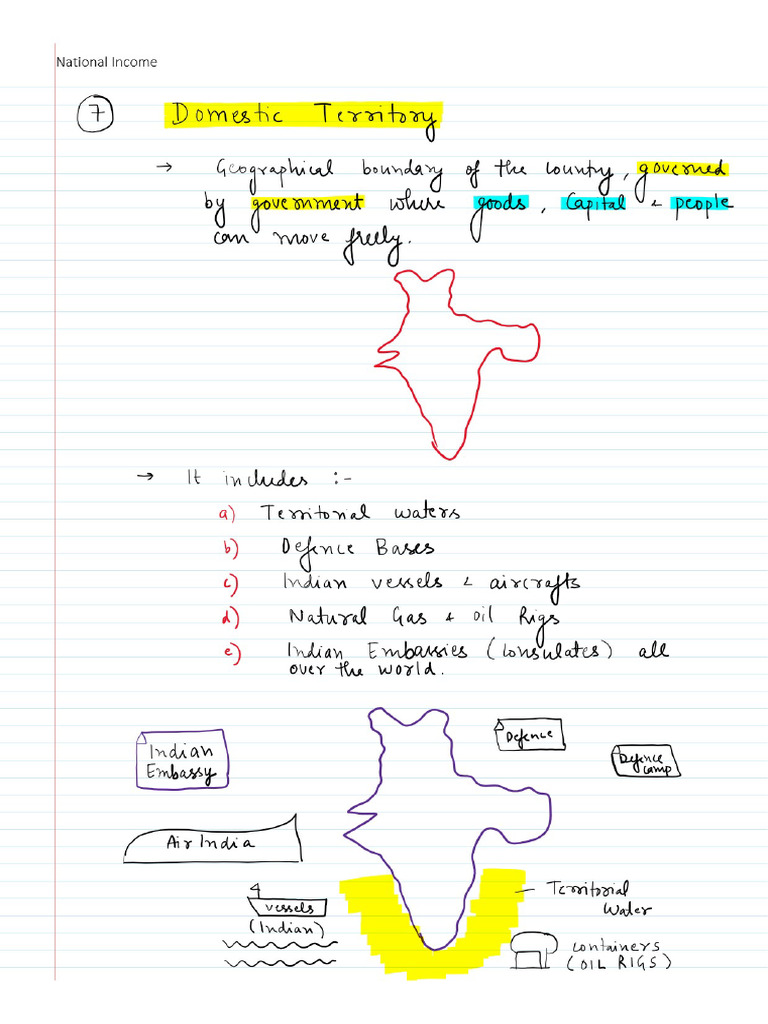 National Income
7 Domestic Territory
→ Geographical boundary of the country, governed
by government where goods, Capital & people
can move freely.
→ It includes :-
a) Territorial waters
b) Defence Bases
c) Indian vessels & aircrafts
d) Natural Gas & oil Rigs
e) Indian Embassies (Consulates) all
over the world.
Indian
Embassy
Defence
Defence
camp
Air India
Territorial
Water
vessels
(Indian)
containers
(OIL RIGS)